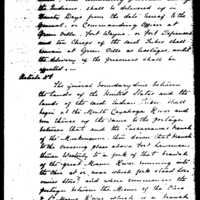 the Indians shall be delivered up in
Ninety Days from the date hereof to the
general, or Commanding Officer at
Greene Ville, Fort Wayne, or Fort Defiance
and ten Chiefs of the said Tribes shall
remain at Greene Ville as hostages, until
the delivery of the prisoners shall be
effected. —
Article 3d
The general boundary line between
the Lands of the United States and the
Lands of the said Indian Tribes shall
begin at the Mouth Cayahoga River and
run thence up the same to the portage
between that and the Tuscarawas branch of
the Muskingum; thence down that branch
to the crossing place above Fort Lawrence
thence Westerly to a fork of that branch of
the great Miami River running into
the Ohio at or near which fork stood
Store, and where commences the
portage between the Miami of the Ohio
& St. Mary's River which is a branch